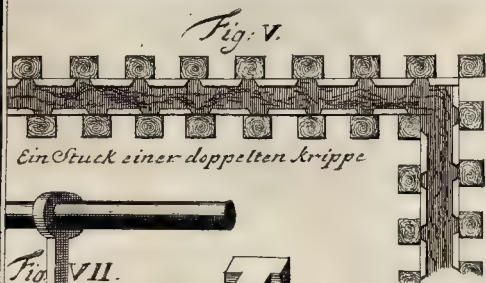 Fig: V.
Ein Stuck einer doppelten krippe
Fig VII.